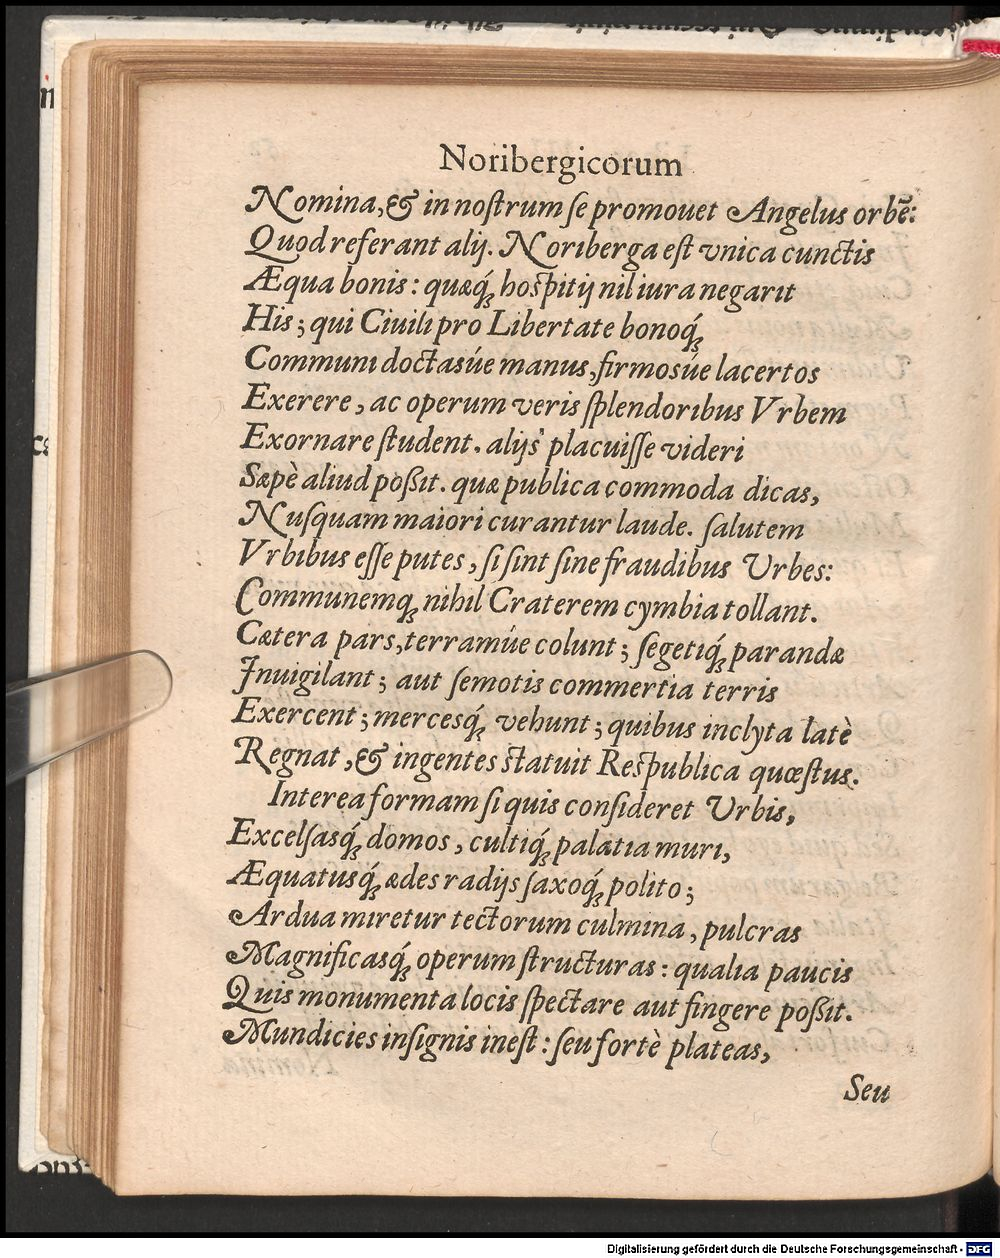 Noribergicorum
Nomina, & in nostrum se promouet Angelus orbē:
Quod referant alij. Noriberga est vnica cunctis
Æqua bonis: quæq́; hospitij nil iura negarit
His; qui Ciuili pro Libertate bonoq́;
Communi doctasúe manus, firmosúe lacertos
Exerere, ac operum veris splendoribus Vrbem
Exornare student. alijs placuisse videri
Sæpè aliud poßit. quæ publica commoda dicas,
Nusquam maiori curantur laude. salutem
Vrbibus esse putes, si sint sine fraudibus Urbes:
Communemq; nihil Craterem cymbia tollant.
Cætera pars, terramúe colunt; segetiq́; parandæ
Inuigilant; aut semotis commertia terris
Exercent; mercesq́; vehunt; quibus inclyta latè
Regnat, & ingentes statuit Respublica quæstus.
Interea formam si quis consideret Urbis,
Excelsasq́; domos, cultiq́; palatia muri,
Æquatusq́; ædes radijs saxoq́; polito;
Ardua miretur tectorum culmina, pulcras
Magnificasq́; operum structuras: qualia paucis
Quis monumenta locis spectare aut fingere poßit.
Mundicies insignis inest: seu fortè plateas,
Seu
Digitalisierung gefördert durch die Deutsche Forschungsgemeinschaft - DFG